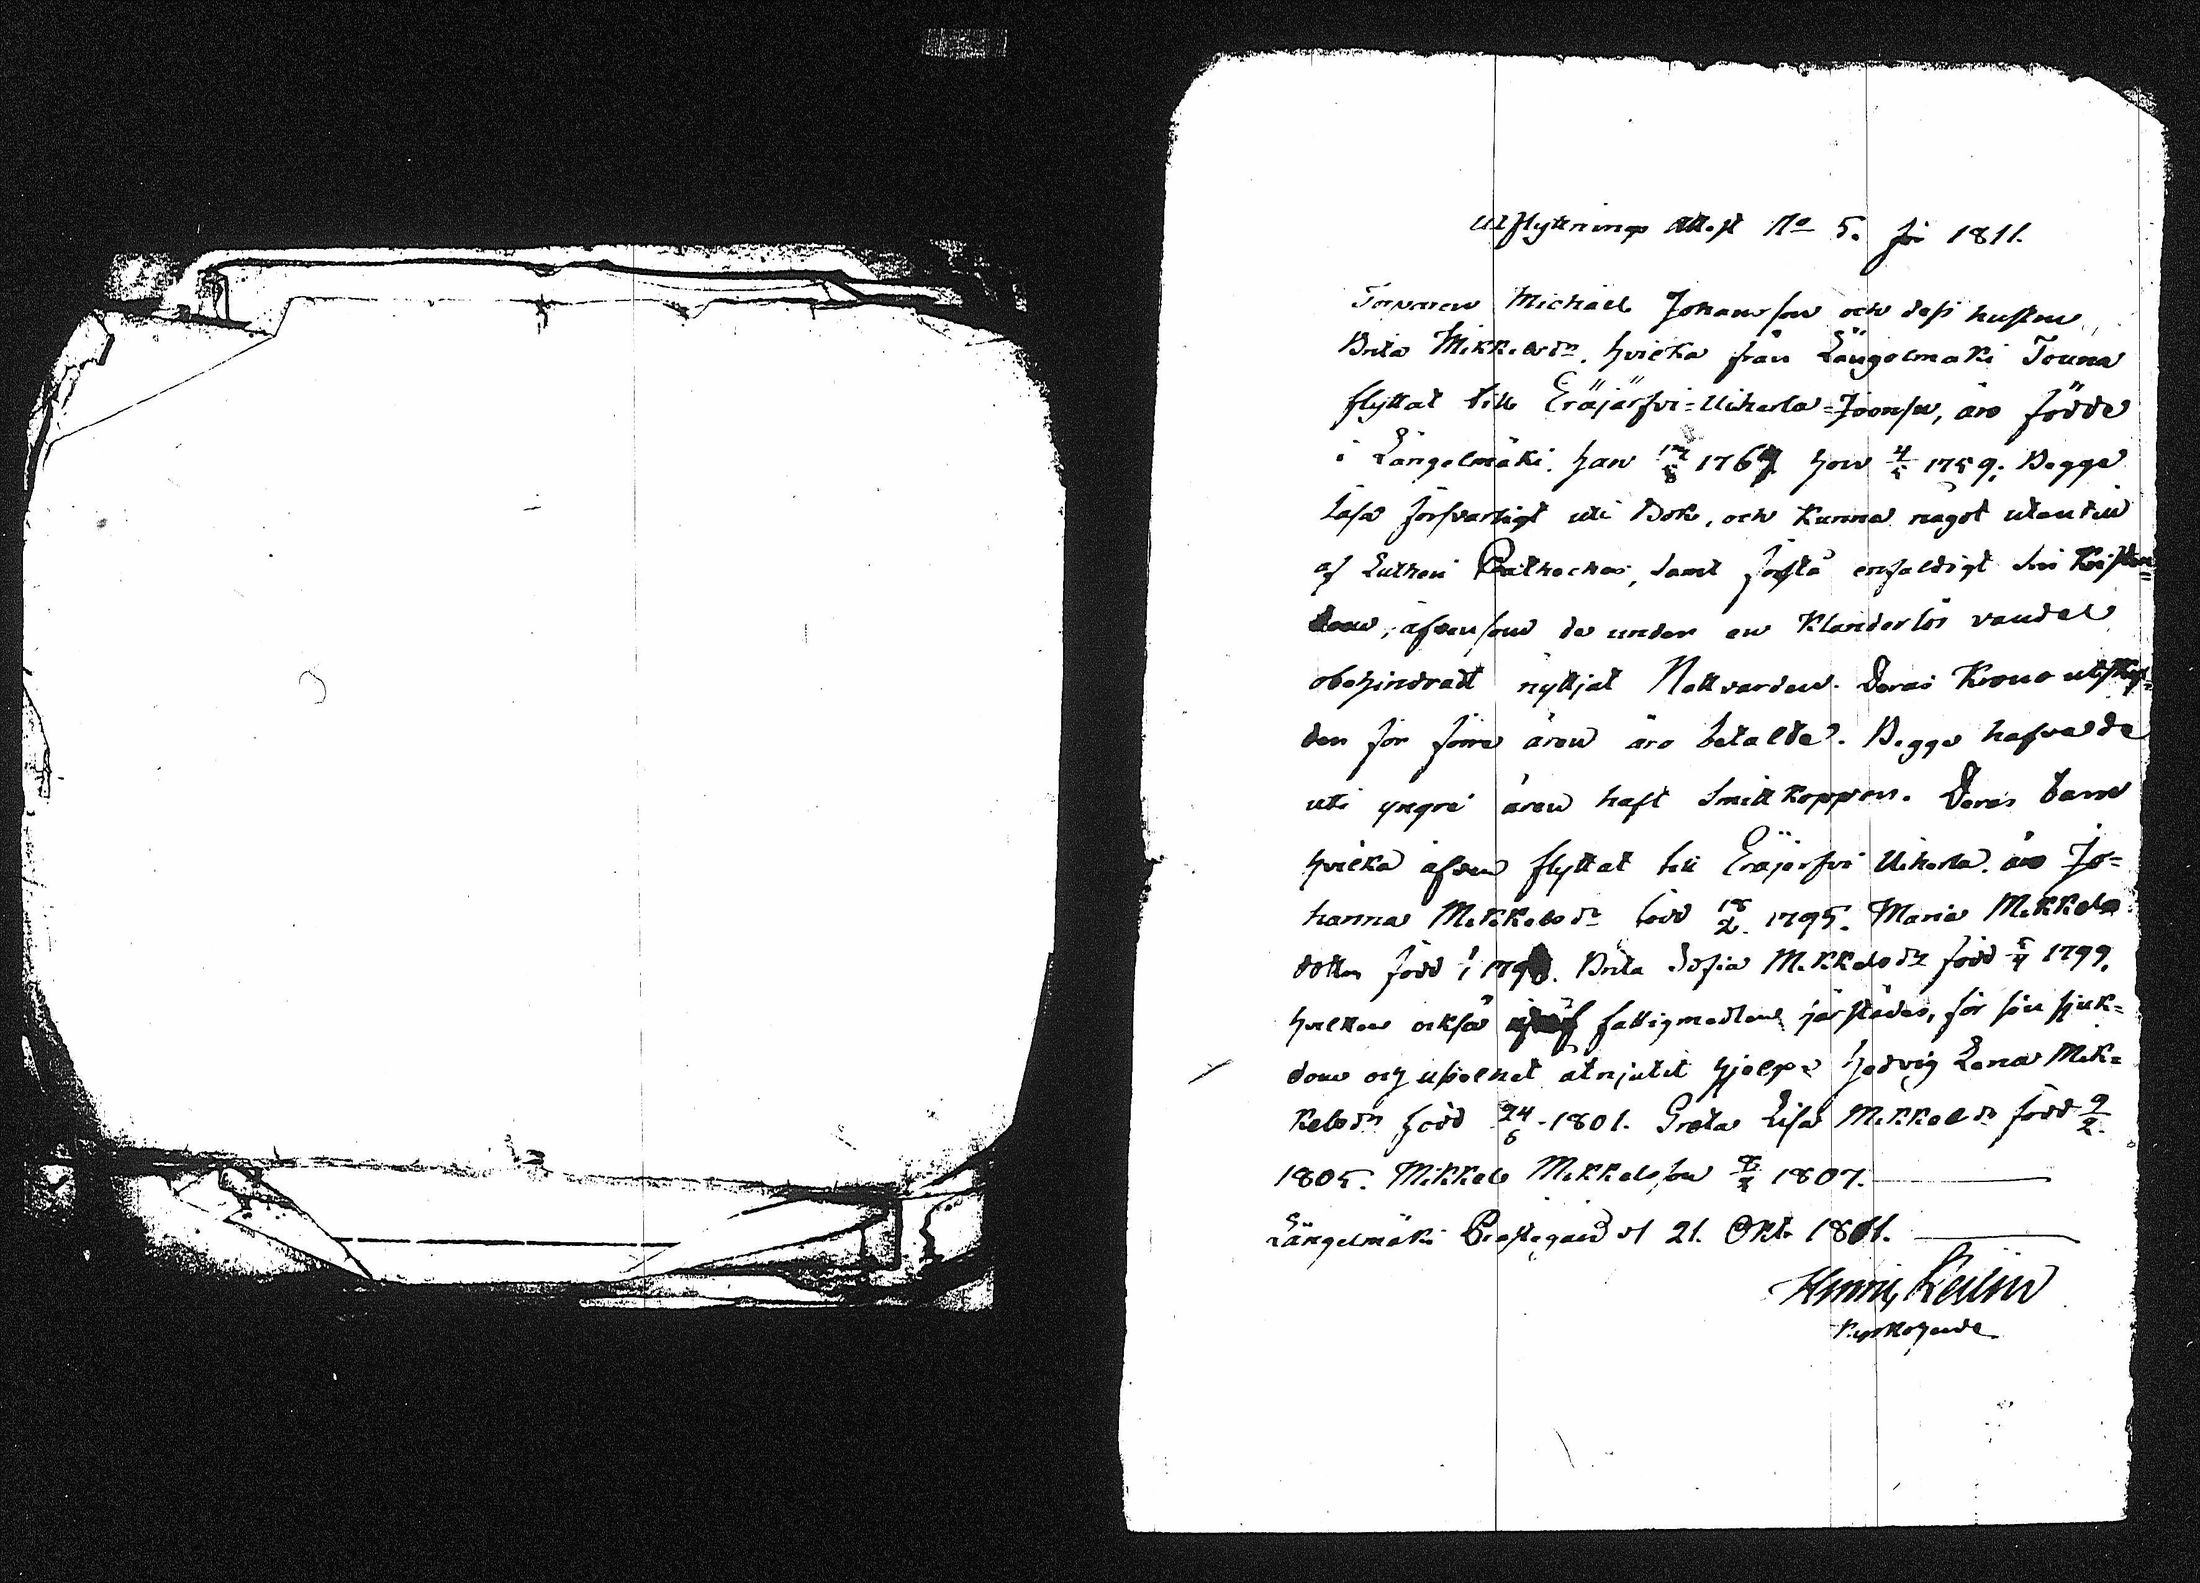 Utflyttnings Attest No 5. för 1811.
Torparen Michael Johansson och dess hustru
Brita Mikkelsdr. hvilka från Längelmäki Touna
flyttat till Eräjärfvi-Uiherla-Joonsu, äro födde
i Längelmäki. han 1767 hon 4/5 1759. Begge
läsa försvarligt uti Bok, och kunna något utantill
af Lutheri Catheches, samt förstå enfaldigt sin Kristen=
dom, äfvensom de under en Klanderlös vandel
obehindradt nyttjat Nattvarden. Deras Krono utskyl=
der för förra åren äro betalde. Begge hafva de
uti yngre åren haft Smittkoppor. Deras barn
hvilka äfven flyttat till Eräjerfvi Uiherla. äro Jo=
hanna Mikkelsdr född 18/2 1795. Maria Mikkels
dotter född 179 Brita Sofia Mikkelsdr född 1799.
hvilken också fattigmedlen härstädes, för sin sjuk=
dom och uselhet åtnjutit hjelp. Hedvig Lena Mik=
kelsdr född 24/6 1801. Greta Lisa Mikkelsdr född 9/2
1805. Mikkel Mikkelsson 1807.
Längelmäki Prestegård d 21. Okt. 1811.
Henric
Kyrkoherde